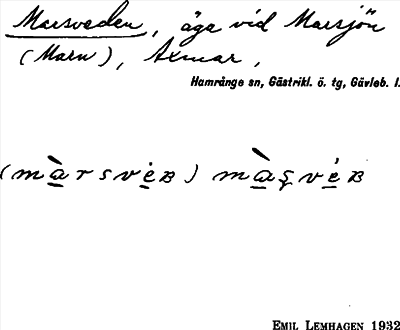 Marsveden, äga vid Marsjön
(Marn), Axmar,
Hamrånge sn, Gästrikl. ö. tg, Gävleb. l.
(màrsvėʙ) màşvėʙ
EMIL LEMHAGEN 1932